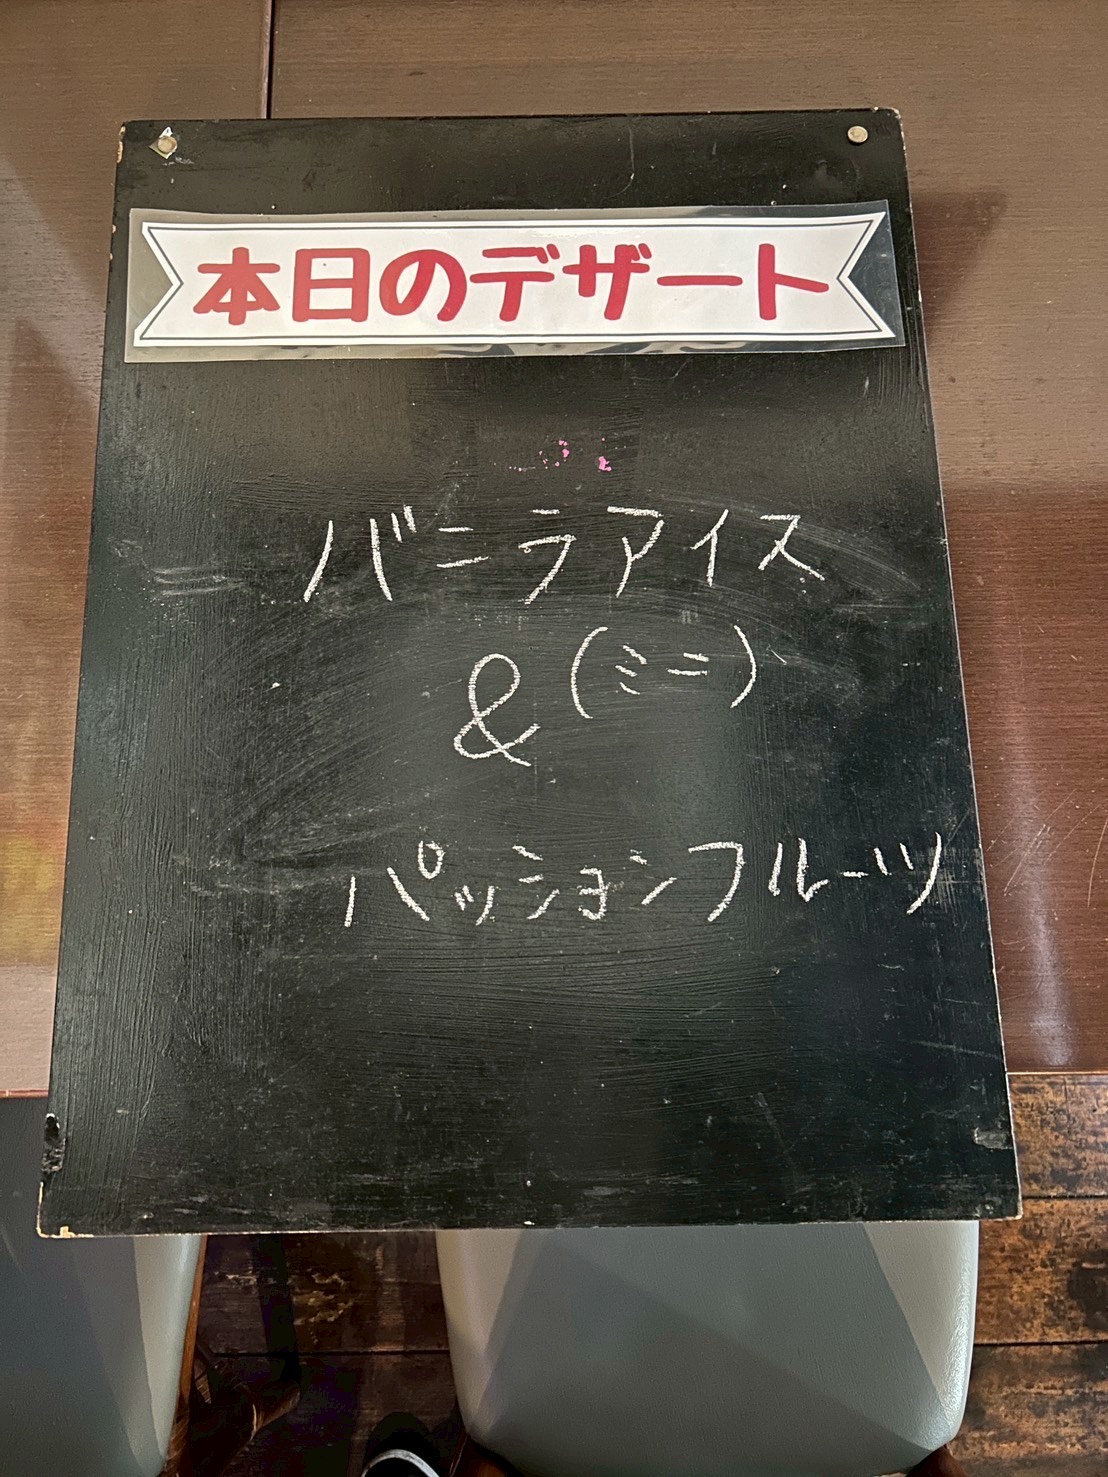 本日のデザート
バニラアイス
& (ミニ)
パッションフルーツ